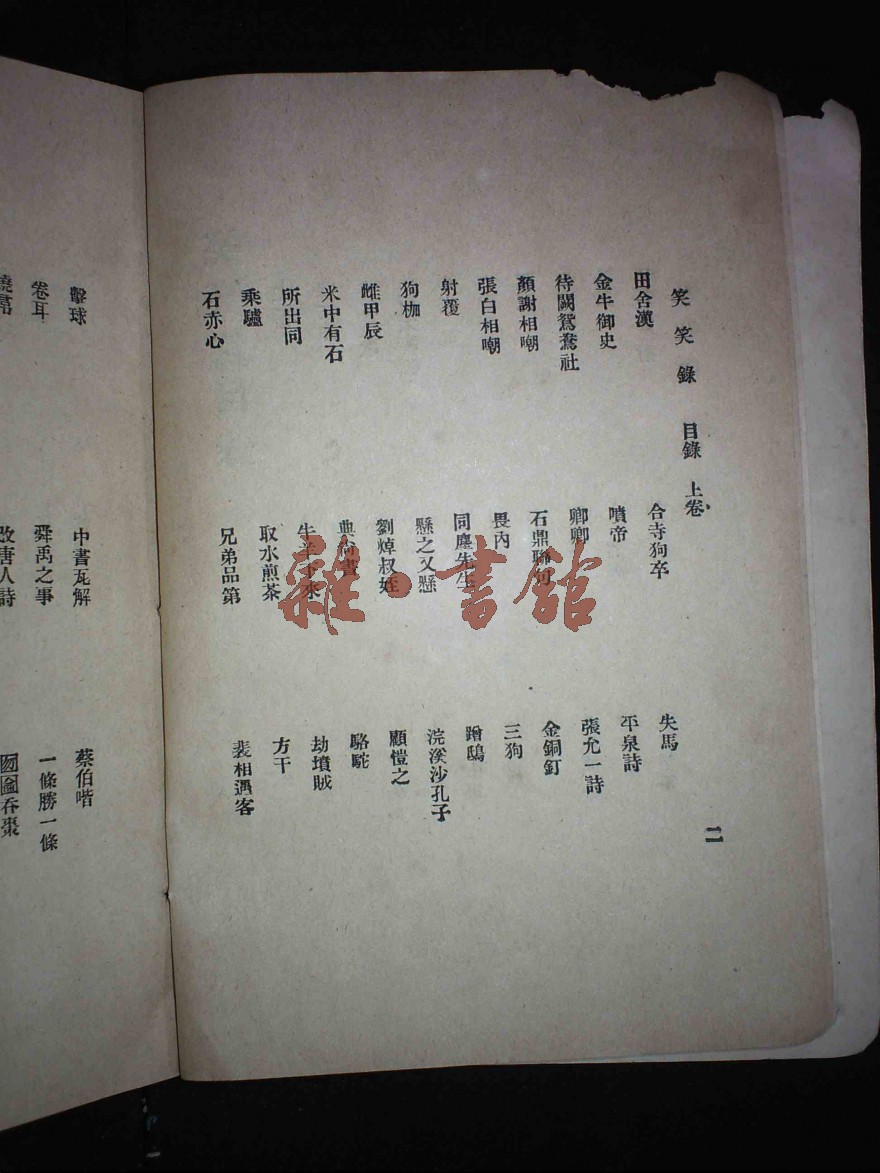 笑笑錄 目錄 上卷 二
田舍漢 合寺狗卒 失馬
金牛御史 噴帝 平泉詩
待闕鴛鴦社 卿卿 張允一詩
顏謝相嘲 石鼎聯句 金銅釘
張白相嘲 畏內 三狗
射覆 同塵先生 蹭鴟
狗枷 懸之又懸 浣溪沙孔子
雌甲辰 劉焯叔姪 顧愷之
米中有石 典尚書 駱駝
所出同 牛羊下 劫墳賊
乘驢 取水煎茶 方干
石赤心 兄弟品第 裴相遇客
擊球 中書瓦解 蔡伯喈
卷耳 舜禹之事 一條勝一條
改唐人詩 囫圇吞棗
雜·書館